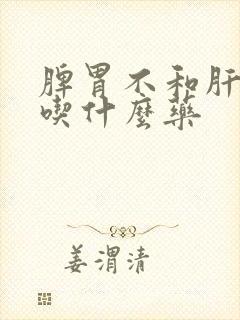 脾胃不和肝
喫什麼藥
姜渭清